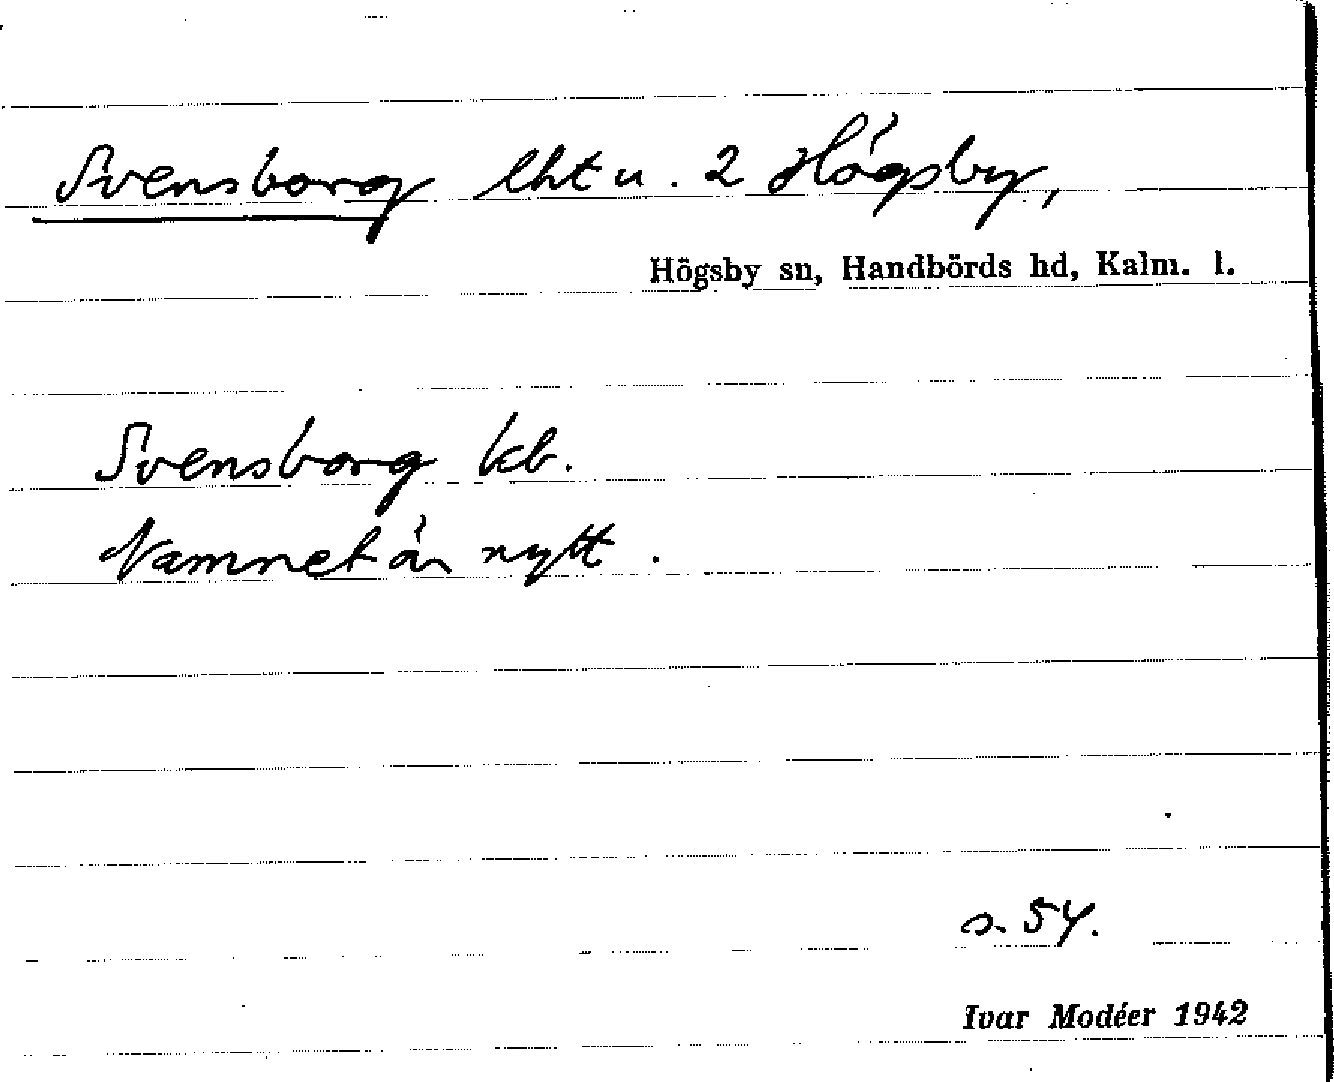 Svensborg lht u. 2 Högsby,
Högsby sn, Handbörds hd, Kalm. l.
Svensborg kb.
Namnet är nytt.
s. 54.
Ivar Modéer 1942